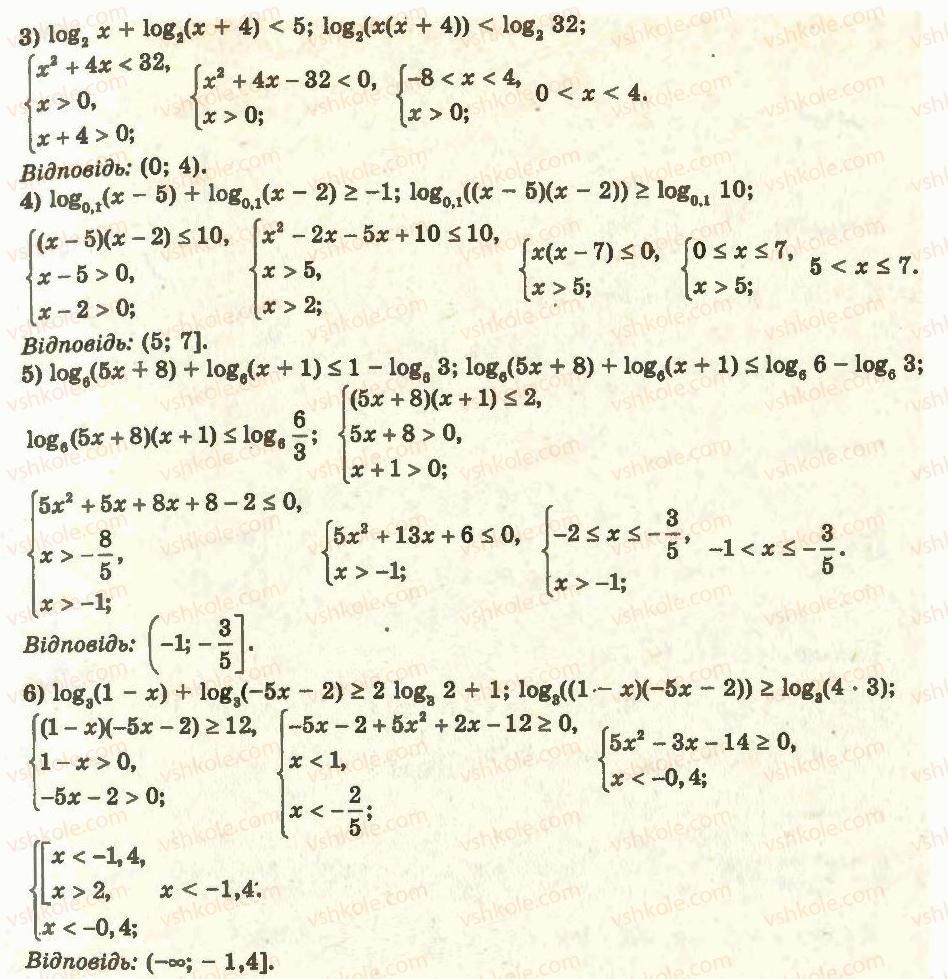 3) log₂ x + log₂(x + 4) < 5; log₂(x(x + 4)) < log₂ 32;
{x² + 4x < 32, x > 0, x + 4 > 0; {x² + 4x − 32 < 0, x > 0; {−8 < x < 4, x > 0; 0 < x < 4.
Відповідь: (0; 4).
4) log₀,₁(x − 5) + log₀,₁(x − 2) ≥ −1; log₀,₁((x − 5)(x − 2)) ≥ log₀,₁ 10;
{(x − 5)(x − 2) ≤ 10, x − 5 > 0, x − 2 > 0; {x² − 2x − 5x + 10 ≤ 10, x > 5, x > 2; {x(x − 7) ≤ 0, x > 5; {0 ≤ x ≤ 7, x > 5; 5 < x ≤ 7.
Відповідь: (5; 7].
5) log₆(5x + 8) + log₆(x + 1) ≤ 1 − log₆ 3; log₆(5x + 8) + log₆(x + 1) ≤ log₆ 6 − log₆ 3;
log₆(5x + 8)(x + 1) ≤ log₆ 6/3; {(5x + 8)(x + 1) ≤ 2, 5x + 8 > 0, x + 1 > 0;
{5x² + 5x + 8x + 8 − 2 ≤ 0, x > −8/5, x > −1; {5x² + 13x + 6 ≤ 0, x > −1; {−2 ≤ x ≤ −3/5, x > −1; −1 < x ≤ −3/5.
Відповідь: (−1; −3/5].
6) log₃(1 − x) + log₃(−5x − 2) ≥ 2 log₃ 2 + 1; log₃((1 − x)(−5x − 2)) ≥ log₃(4 · 3);
{(1 − x)(−5x − 2) ≥ 12, 1 − x > 0, −5x − 2 > 0; {−5x − 2 + 5x² + 2x − 12 ≥ 0, x < 1, x < −2/5; {5x² − 3x − 14 ≥ 0, x < −0,4;
{[x < −1,4, x > 2, x < −0,4; x < −1,4.
Відповідь: (−∞; − 1,4].